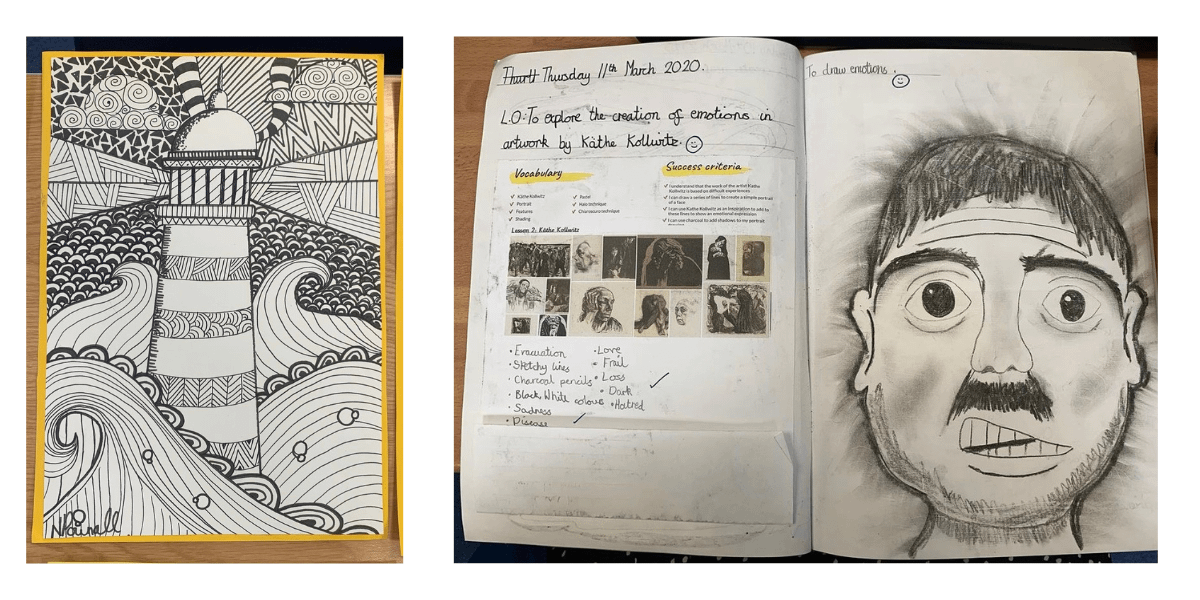 Thursday 11th March 2020.
L.O: To explore the creation of emotions in
artwork by Käthe Kollwitz.
Vocabulary
✓ Käthe Kollwitz
✓ Portrait
✓ Features
✓ Shading
✓ Pastel
✓ Halo technique
✓ Chiaroscuro technique
Success criteria
✓ I understand that the work of the artist Käthe
Kollwitz is based on difficult experiences
✓ I can draw a series of lines to create a simple portrait
of a face
✓ I can use Käthe Kollwitz as an inspiration to add to
these lines to show an emotional expression
✓ I can use charcoal to add shadows to my portrait
Lesson 2: Käthe Kollwitz
• Evacuation
• Sketchy lines
• Charcoal pencils
• Black, White colours
• Sadness
• Disease
• Love
• Frail
• Loss
• Dark
• Hatred
To draw emotions.